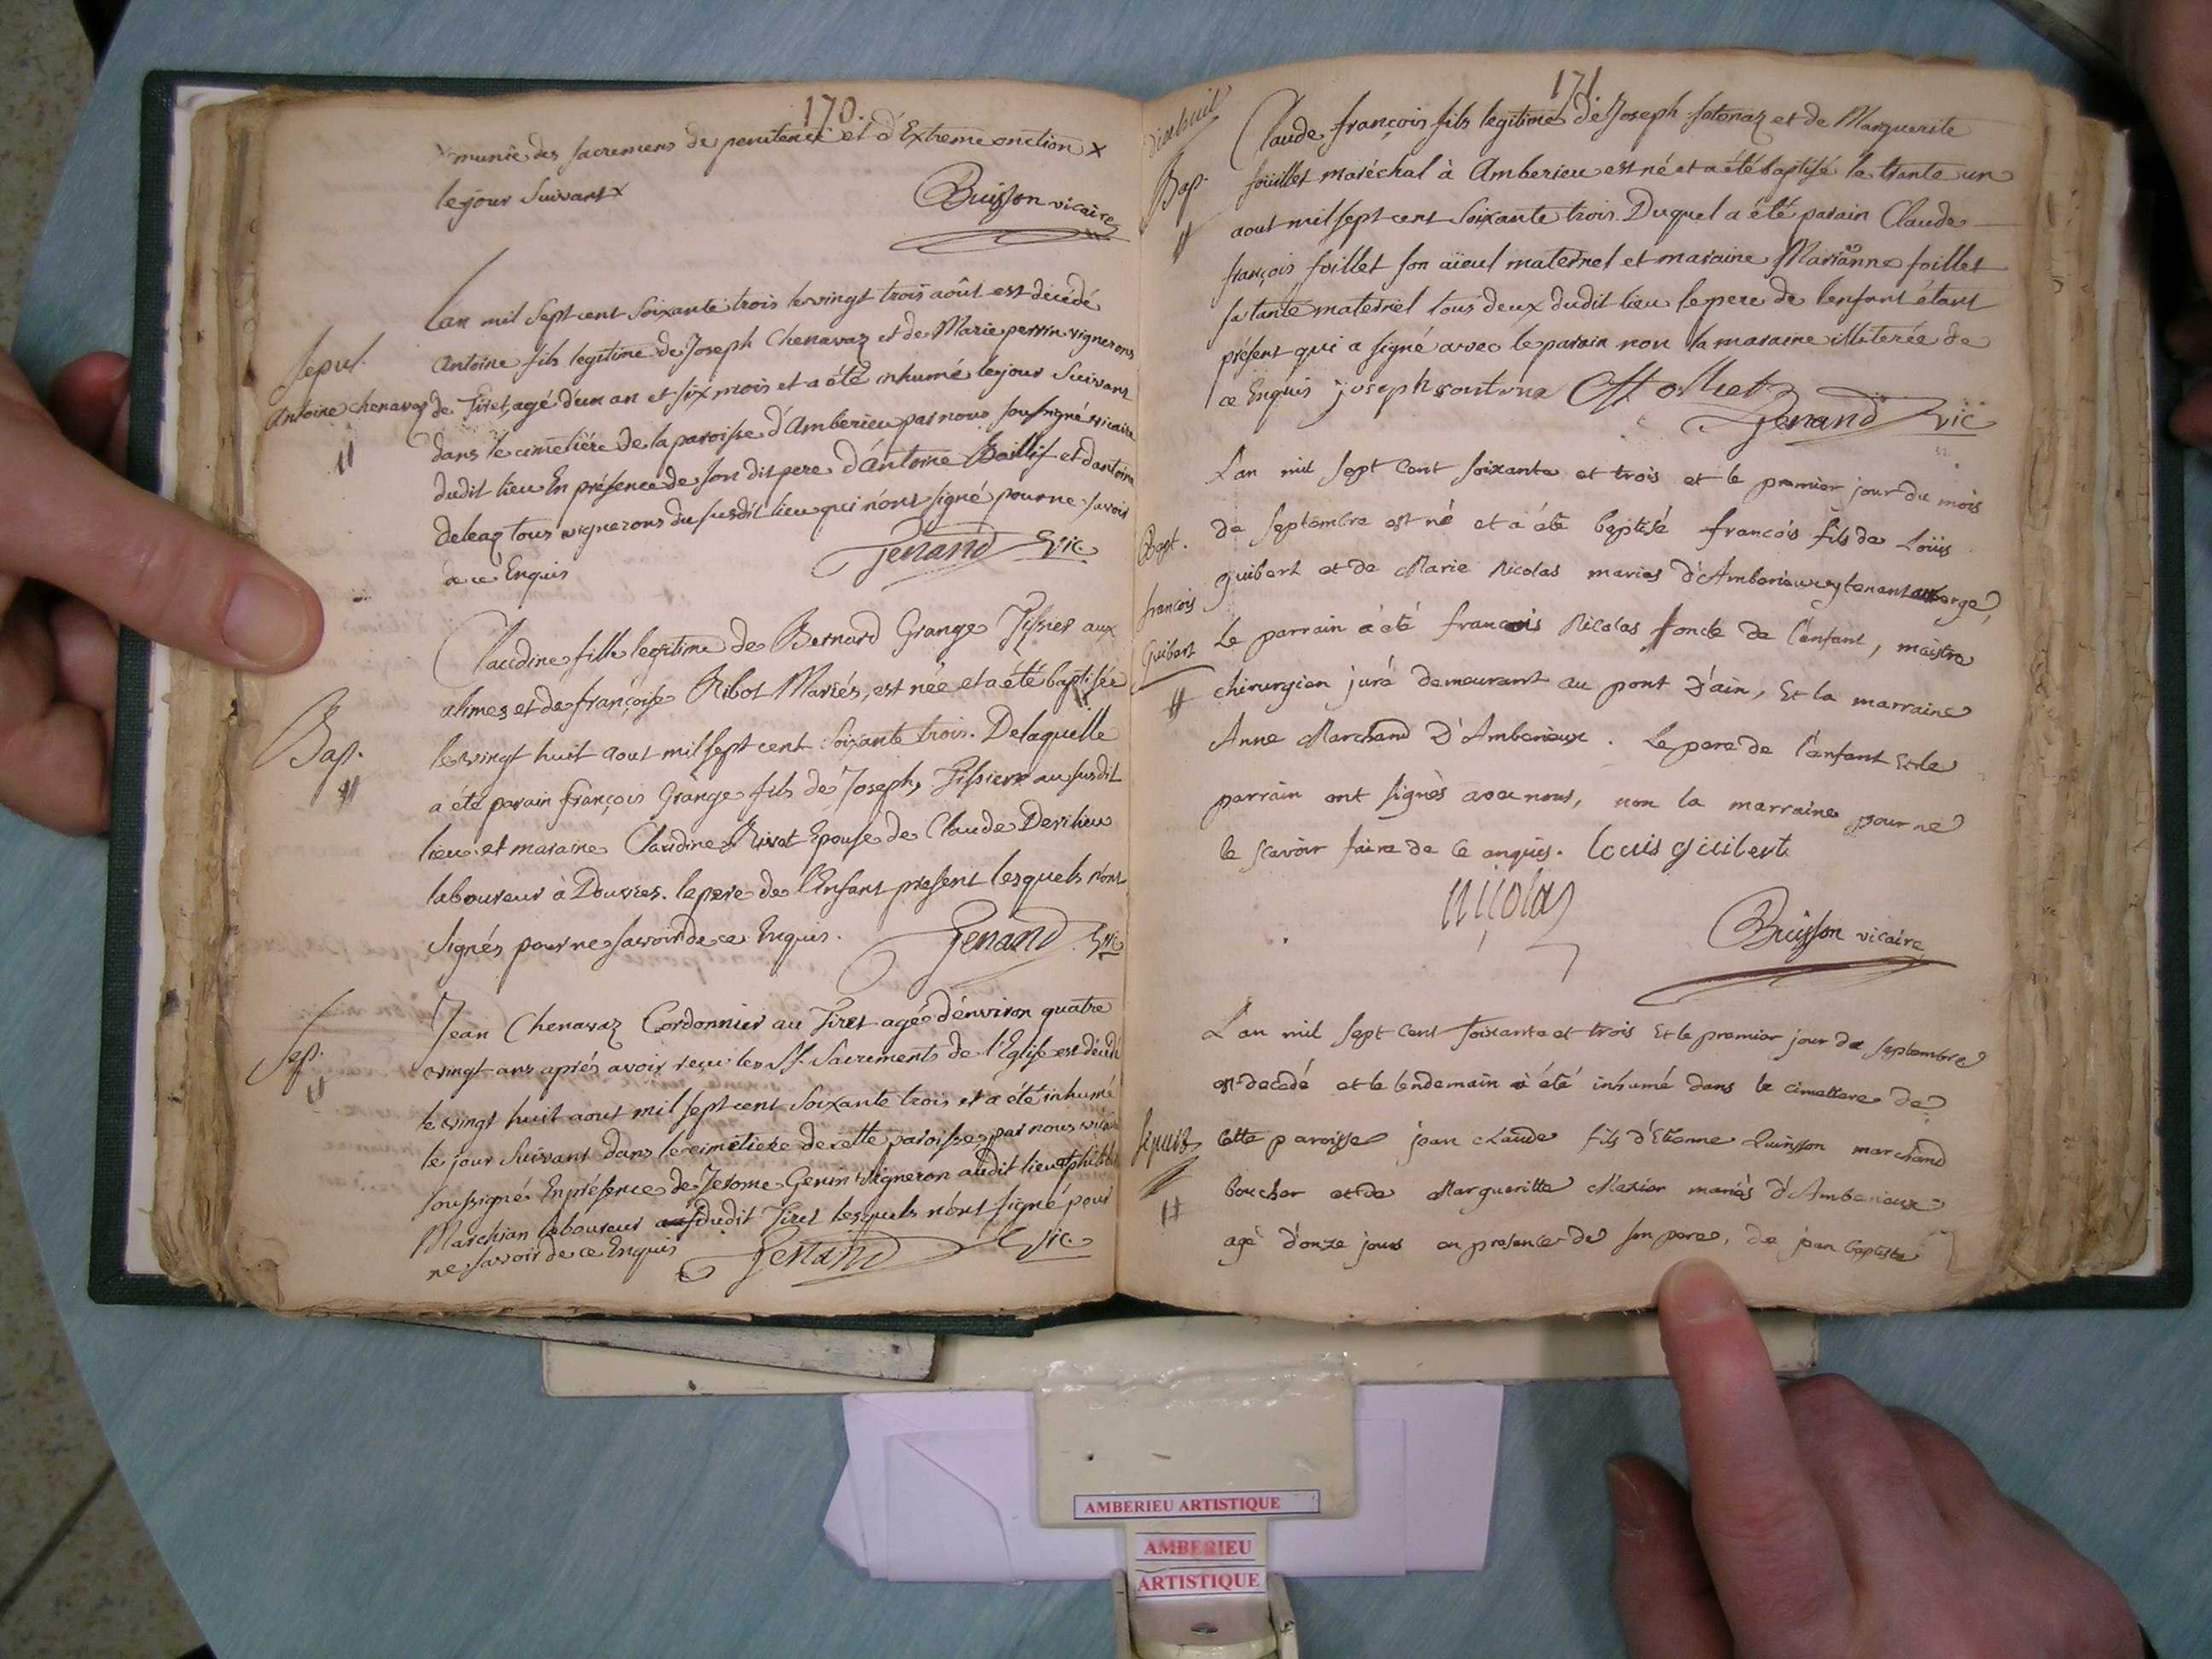 170.
munie des sacremens de penitence et d'Extreme onction x
le jour suivant x
Buisson vicaire
Lan mil sept cent soixante trois le vingt trois août est décédé
Sepul.
Antoine fils legitime de Joseph Chenavaz et de Marie perrin vignerons
Antoine chenavaz
de Tiret, agé d'un an et six mois et a été inhumé le jour suivant
dans le cimetiére de la paroisse d'Amberieu par nous soussigné vicaire
dudit lieu En présence de son dit pere d'Antoine Baillif et d'antoine
deleaz tous vignerons du susdit lieu qui n'ont signé pour ne savoir
de ce Enquis
Genand Vic.
Claudine fille legitime de Bernard Grange Tissier aux
alimes et de françoise Ribot Mariés, est née et a été baptisée
Bap.
le vingt huit aout mil sept cent soixante trois. De laquelle
a été parain françois Grange fils de Joseph, Tissier au susdit
lieu et maraine Claudine Rivot Epouse de Claude Devilieu
laboureur à Douvres. le pere de l'Enfant present lesquels n'ont
signés pour ne savoir de ce Enquis.
Genand Vic
Jean Chenavaz Cordonnier au Tiret agée d'environ quatre
Sep.
vingt ans aprés avoir reçu les SS. Sacrements de l'Eglise est décédé
le vingt huit aout mil sept cent soixante trois et a été inhumé
le jour suivant dans le cimetiere de cette paroisse par nous vicaire
soussigné En présence de Jerome Genin vigneron audit lieu et
Marchian laboureur dudit Tiret lesquels n'ont signé pour
ne savoir de ce Enquis
Genand Vic.
171.
Claude françois fils legitime de Joseph fotonaz et de Marguerite
Bap.
foüillet maréchal à Amberieu est né et a été baptisé le trante un
aout mil sept cent soixante trois. Duquel a été parain Claude
françois foillet son aïeul maternel et maraine Marianne foillet
sa tante maternel tous deux dudit lieu le pere de l'enfant étant
présent qui a signé avec le parain non la maraine illiterée de
ce Enquis joseph
Genand Vic
Lan mil sept cent soixante et trois et le premier jour du mois
Bapt.
de septembre est né et a été baptisé francois fils de Loüis
francois
guibert et de Marie Nicolas mariés d'Amberieux y tenant auberge,
Guibert
Le parrain a été francois Nicolas oncle de l'enfant, maistre
chirurgien juré demeurant au pont D'ain, Et la marraine
Anne Marchand D'Amberieux. Le pere de l'enfant Et le
parrain ont signès avec nous, non la marraine pour ne
le scavoir faire de ce enquis. Louis guibert
nicolas
Buisson vicaire
Lan mil sept cent soixante et trois Et le premier jour de septembre
est decedé et le lendemain a été inhumé dans le cimettere de
cette paroisse jean claude fils d'Etienne Quinsson marchand
boucher et de Margueritte mariès d'Amberieux
agé d'onze jours en presence de son pere, de jean baptiste
AMBERIEU ARTISTIQUE
AMBERIEU
ARTISTIQUE